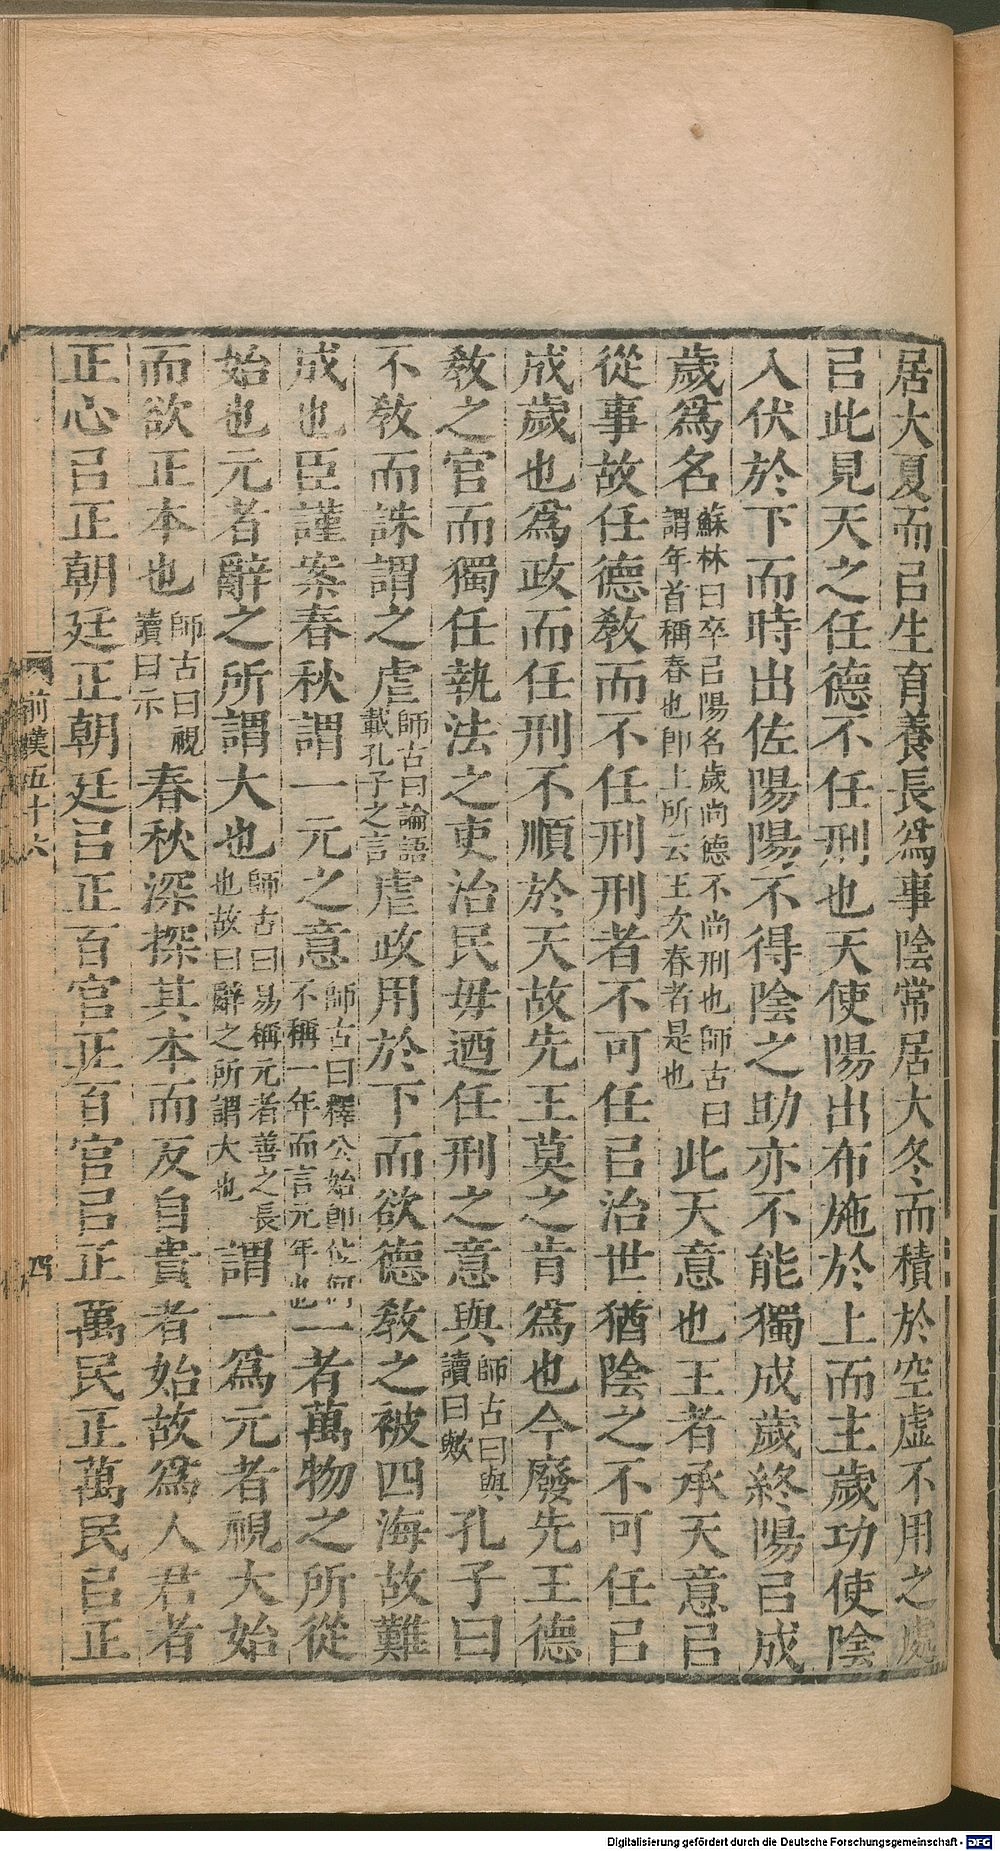 居大夏而㠯生育養長爲事陰常居大冬而積於空虛不用之處
㠯此見天之任德不任刑也天使陽出布施於上而主歲功使陰
入伏於下而時出佐陽陽不得陰之助亦不能獨成歲終陽㠯成
歲爲名蘇林曰卒㠯陽名歲尚德不尚刑也師古曰謂年首稱春也卽上所云王次春者是也此天意也王者承天意㠯
從事故任德敎而不任刑刑者不可任㠯治世猶陰之不可任㠯
成歲也爲政而任刑不順於天故先王莫之肯爲也今廢先王德
敎之官而獨任執法之吏治民毋迺任刑之意與師古曰與讀曰歟孔子曰
不敎而誅謂之虐師古曰論語載孔子之言虐政用於下而欲德敎之被四海故難
成也臣謹案春秋謂一元之意師古曰釋公始卽位何不稱一年而言元年也一者萬物之所從
始也元者辭之所謂大也師古曰易稱元者善之長也故曰辭之所謂大也謂一爲元者視大始
而欲正本也師古曰視讀曰示春秋深探其本而反自貴者始故爲人君者
正心㠯正朝廷正朝廷㠯正百官正百官㠯正萬民正萬民㠯正
前漢五十六
四
Digitalisierung gefördert durch die Deutsche Forschungsgemeinschaft - DFG